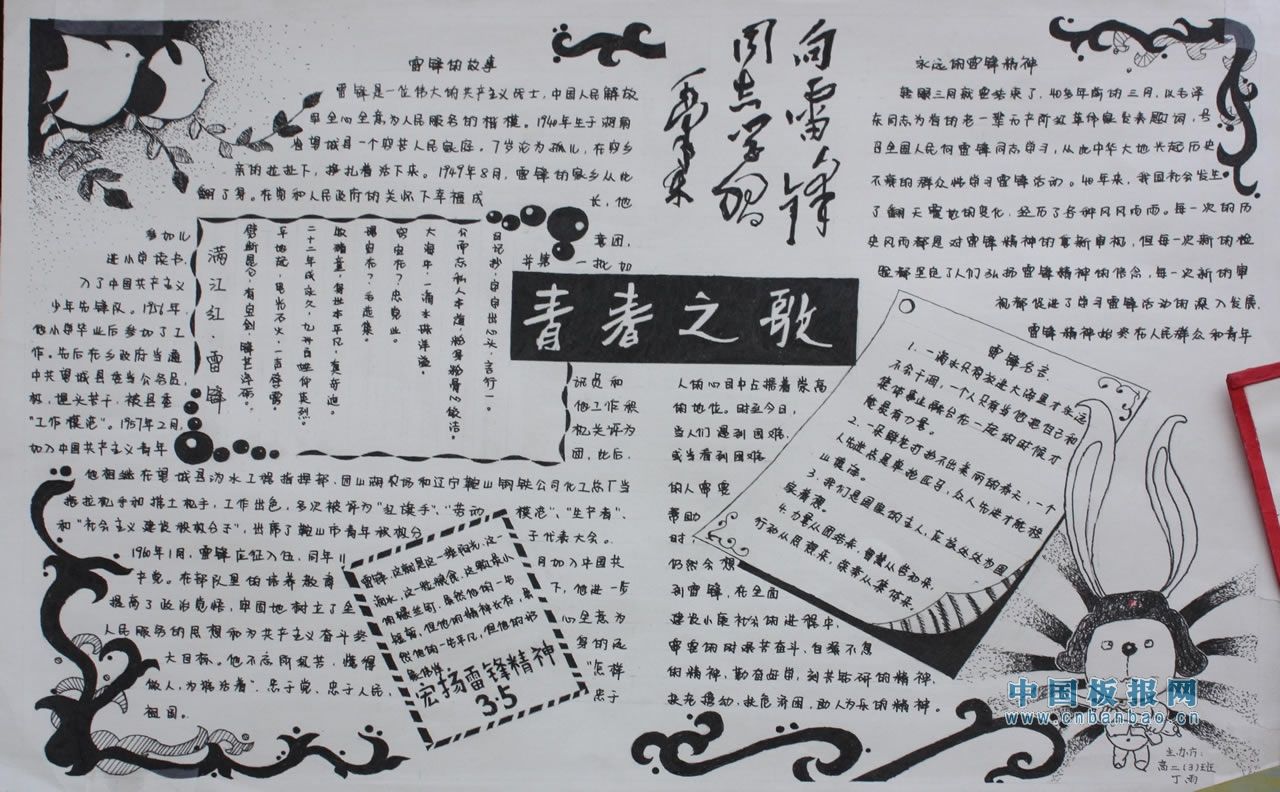 雷锋的故事
雷锋是一位伟大的共产主义战士,中国人民解放
早全心全意为人民服务的楷模。1940年生于湖南
省望城县一个穷苦人民家庭。7岁沦为孤儿,在穷乡
亲的拉扯下,挣扎着活下来。1949年8月,雷锋的家乡从此
翻了身。在党和人民政府的关怀下幸福成长,他
参加儿童团,
进小学读书,并第一批加
入了中国共产主义
少年先锋队。1956年,
他小学毕业后参加了工
作。先后在乡政府当通讯员和
中共望城县委当公务员,他工作积
极,埋头苦干,被县委机关评为
"工作模范"。1957年2月,
加入中国共产主义青年团,此后,
他相继在望城县沩水工程指挥部、团山湖农场和辽宁鞍山钢铁公司化工总厂当
拖拉机手和推土机手,工作出色,多次被评为"红旗手"、"劳动模范"、"生产者"、
和"社会主义建设积极分子",出席了鞍山市青年积极分子代表大会。
1960年1月,雷锋应征入伍,同年11月加入中国共
产党。在部队里的培养教育下,他进一步
提高了政治觉悟,牢固地树立了全心全意为
人民服务的思想和为共产主义奋斗终身的远
大目标。他不忘阶级苦,懂得"怎样
做人,为谁活着",忠于党、忠于人民,忠于
祖国。
满江红·雷锋
日记抄,字字出心头,言行一。
分而忘私人本道,粉身粉骨心皎洁。
大海中,一滴水珠洋溢。
穷实在?忠党业。
谭实在?毛选集。
二十三年成永久,九州百姓仰英烈。
平地起,电光石火,一声霹雳。
劈断昆仑,有宝剑,锋芒泽丽。
向雷锋
同志学习
毛泽东
青春之歌
永远的雷锋精神
转眼三月就要结束了,40多年前的三月,以毛泽
东同志为首的老一辈无产阶级革命家发表题词,号
召全国人民向雷锋同志学习,从此中华大地兴起历史
不衰的群众性学习雷锋活动。40年来,我国社会发生
了翻天覆地的变化,经历了各种风风雨雨。每一次的历
史风雨都是对雷锋精神的重新审视,但每一次新的检
验都坚定了人们弘扬雷锋精神的信念,每一次新的审
视都促进了学习雷锋活动的深入发展,
雷锋精神始终在人民群众和青年
人的心目中占据着崇高
的地位。时至今日,
当人们遇到困难,
或当看到困难
的人需要
帮助
时,
仍然会想
到雷锋,在全面
建设小康社会的进程中,
需要的时艰苦奋斗、自强不息
的精神,勤奋母贝,刻苦钻研的精神,
扶老携幼、扶危济困,助人为乐的精神。
雷锋名言
1.一滴水只有放进大海里才永远
不会干涸,一个人只有当他把自己和
集体事业融合在一起的时候才
能最有力量。
2.一朵鲜花打扮不出美丽的春天,一个
人先进总是单枪匹马,众人先进才能移
山填海。
3.我们是国家的主人,应该处处为国
家着想。
4.力量从团结来,智慧从劳动来,
行动从思想来,荣誉从集体来。
雷锋,这就是这一缕阳光,这一
滴水,这一粒粮食,这颗最小
的螺丝钉,虽然他的一步
短暂,但他的精神长存,虽
然他的一步平凡,但他的
最伟
宏扬雷锋精神
3·5
中国板报网
www.cnbanbao.cn
主办方:
高二(3)班
丁雨